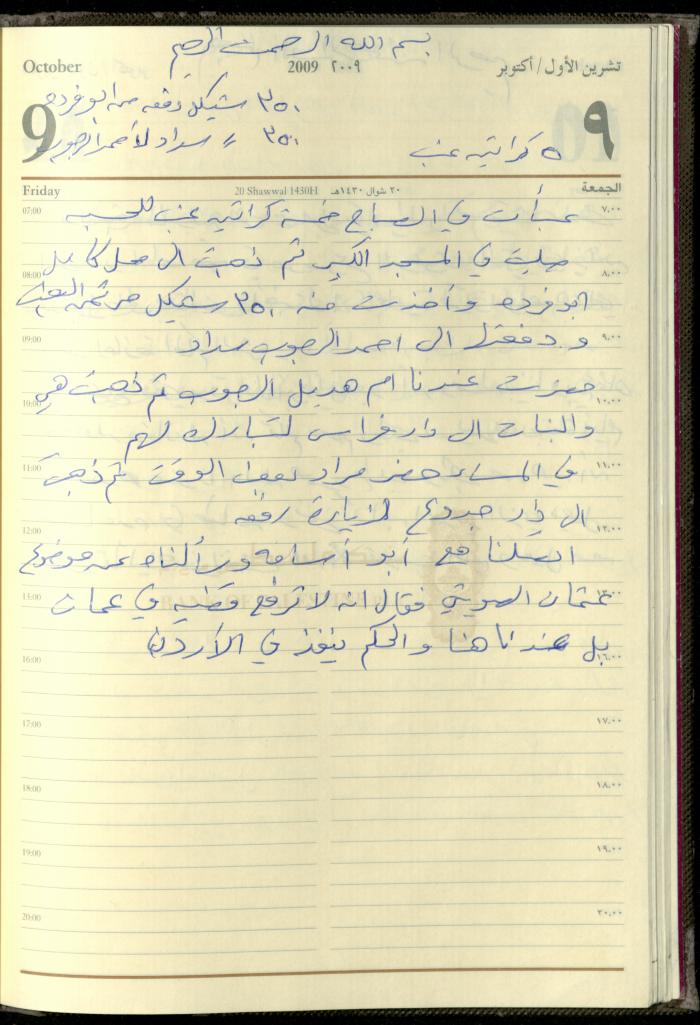 بسم الله الرحمن الرحيم
October 2009 ٢٠٠٩ تشرين الأول/أكتوبر
9 ٩
٣٥٠ شيكل دفعه من ابو فرده
٣٥٠ // سداد لأحمد الرجوب
٥ كراتين عنب
Friday 20 Shawwal 1430H ٢٠ شوال ١٤٣٠هـ الجمعة
07:00 ٧،٠٠
عبأت في الصباح خمسة كراتين عنب للحسبه
صليت في المسجد الكبير ثم ذهبت الى محل كامل
08:00 ٨،٠٠
ابو فرده وأخذت منه ٣٥٠ شيكل من ثمن العنب
09:00 ٩،٠٠
ودفعتها الى احمد الرجوب سداد
حضرت عندنا ام هديل الرجوب ثم ذهبت هي
10:00 ١٠،٠٠
والبنات الى دار فراس لتبارك لهم
11:00 ١١،٠٠
في المساء حضر مراد بعض الوقت ثم ذهبت
الى دار جدوع لزيارة رفقه
12:00 ١٢،٠٠
اتصلنا مع أبو أسامه وسألناه عن موضوع
13:00 ١٣،٠٠
عثمان فقال انه لا ترفع قضيه في عمان
بل عندنا هنا والحكم ينفذ في الأردن
16:00 ١٦،٠٠
17:00 ١٧،٠٠
18:00 ١٨،٠٠
19:00 ١٩،٠٠
20:00 ٢٠،٠٠